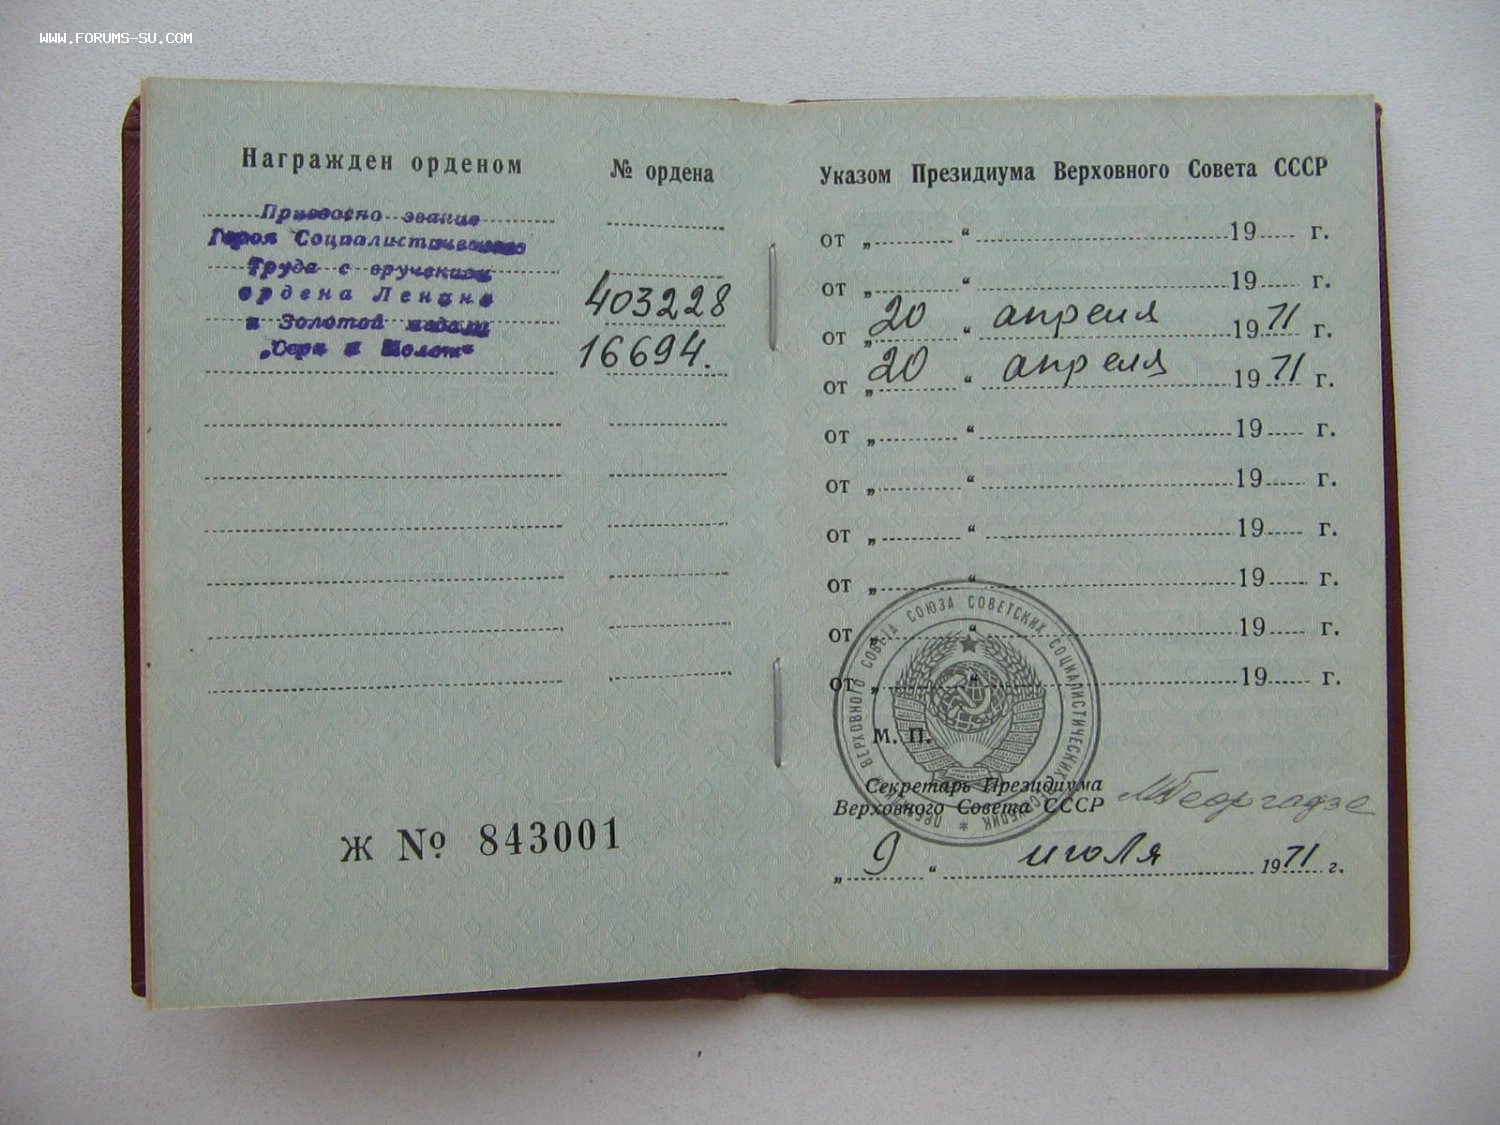 WWW.FORUMS-SU.COM
Награжден орденом № ордена
Присвоено звание
Героя Социалистического
Труда с вручением
ордена Ленина 403228
и Золотой медали
„Серп и Молот“ 16694.
Ж № 843001
Указом Президиума Верховного Совета СССР
от „ “ 19 г.
от „ “ 19 г.
от „ 20 “ апреля 1971 г.
от „ 20 “ апреля 1971 г.
от „ “ 19 г.
от „ “ 19 г.
от „ “ 19 г.
от „ “ 19 г.
от „ “ 19 г.
от „ “ 19 г.
ПРЕЗИДИУМ ВЕРХОВНОГО СОВЕТА СОЮЗА СОВЕТСКИХ СОЦИАЛИСТИЧЕСКИХ РЕСПУБЛИК *
М. П.
Секретарь Президиума
Верховного Совета СССР МГеоргадзе
„ 9 “ июля 1971 г.